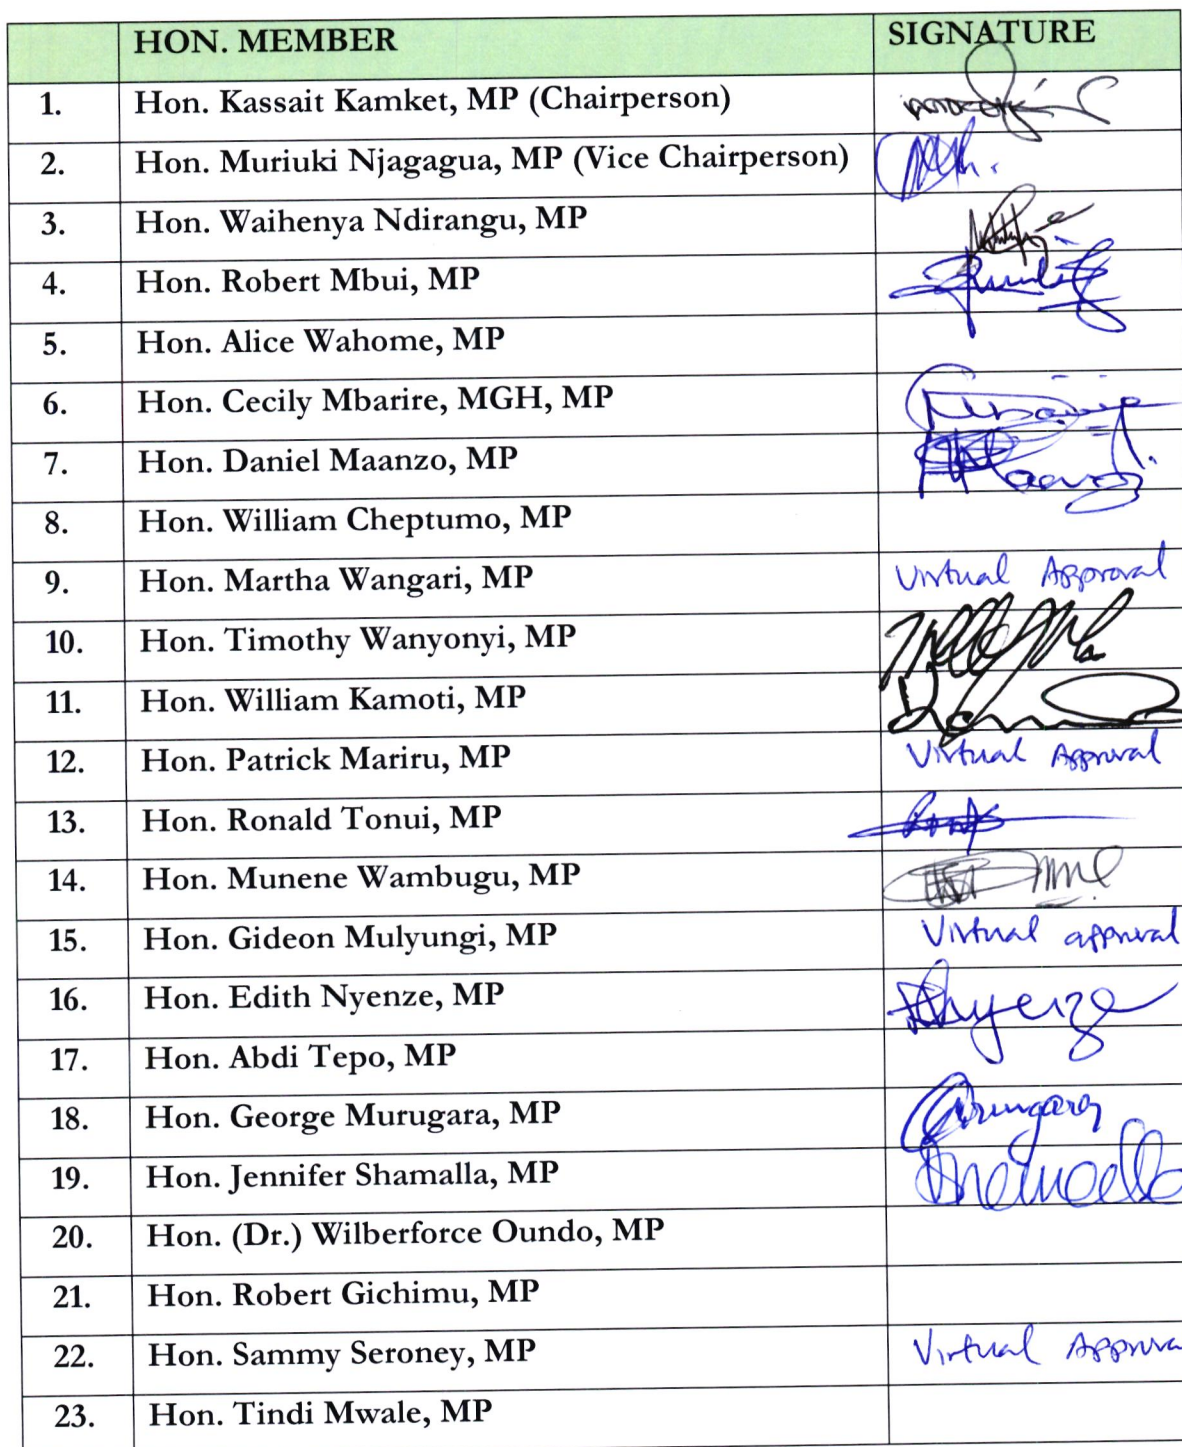 HON. MEMBER SIGNATURE
1. Hon. Kassait Kamket, MP (Chairperson)
2. Hon. Muriuki Njagagua, MP (Vice Chairperson)
3. Hon. Waihenya Ndirangu, MP
4. Hon. Robert Mbui, MP
5. Hon. Alice Wahome, MP
6. Hon. Cecily Mbarire, MGH, MP
7. Hon. Daniel Maanzo, MP
8. Hon. William Cheptumo, MP
9. Hon. Martha Wangari, MP Virtual Approval
10. Hon. Timothy Wanyonyi, MP
11. Hon. William Kamoti, MP
12. Hon. Patrick Mariru, MP Virtual Approval
13. Hon. Ronald Tonui, MP
14. Hon. Munene Wambugu, MP
15. Hon. Gideon Mulyungi, MP Virtual approval
16. Hon. Edith Nyenze, MP
17. Hon. Abdi Tepo, MP
18. Hon. George Murugara, MP
19. Hon. Jennifer Shamalla, MP
20. Hon. (Dr.) Wilberforce Oundo, MP
21. Hon. Robert Gichimu, MP
22. Hon. Sammy Seroney, MP Virtual Approva
23. Hon. Tindi Mwale, MP